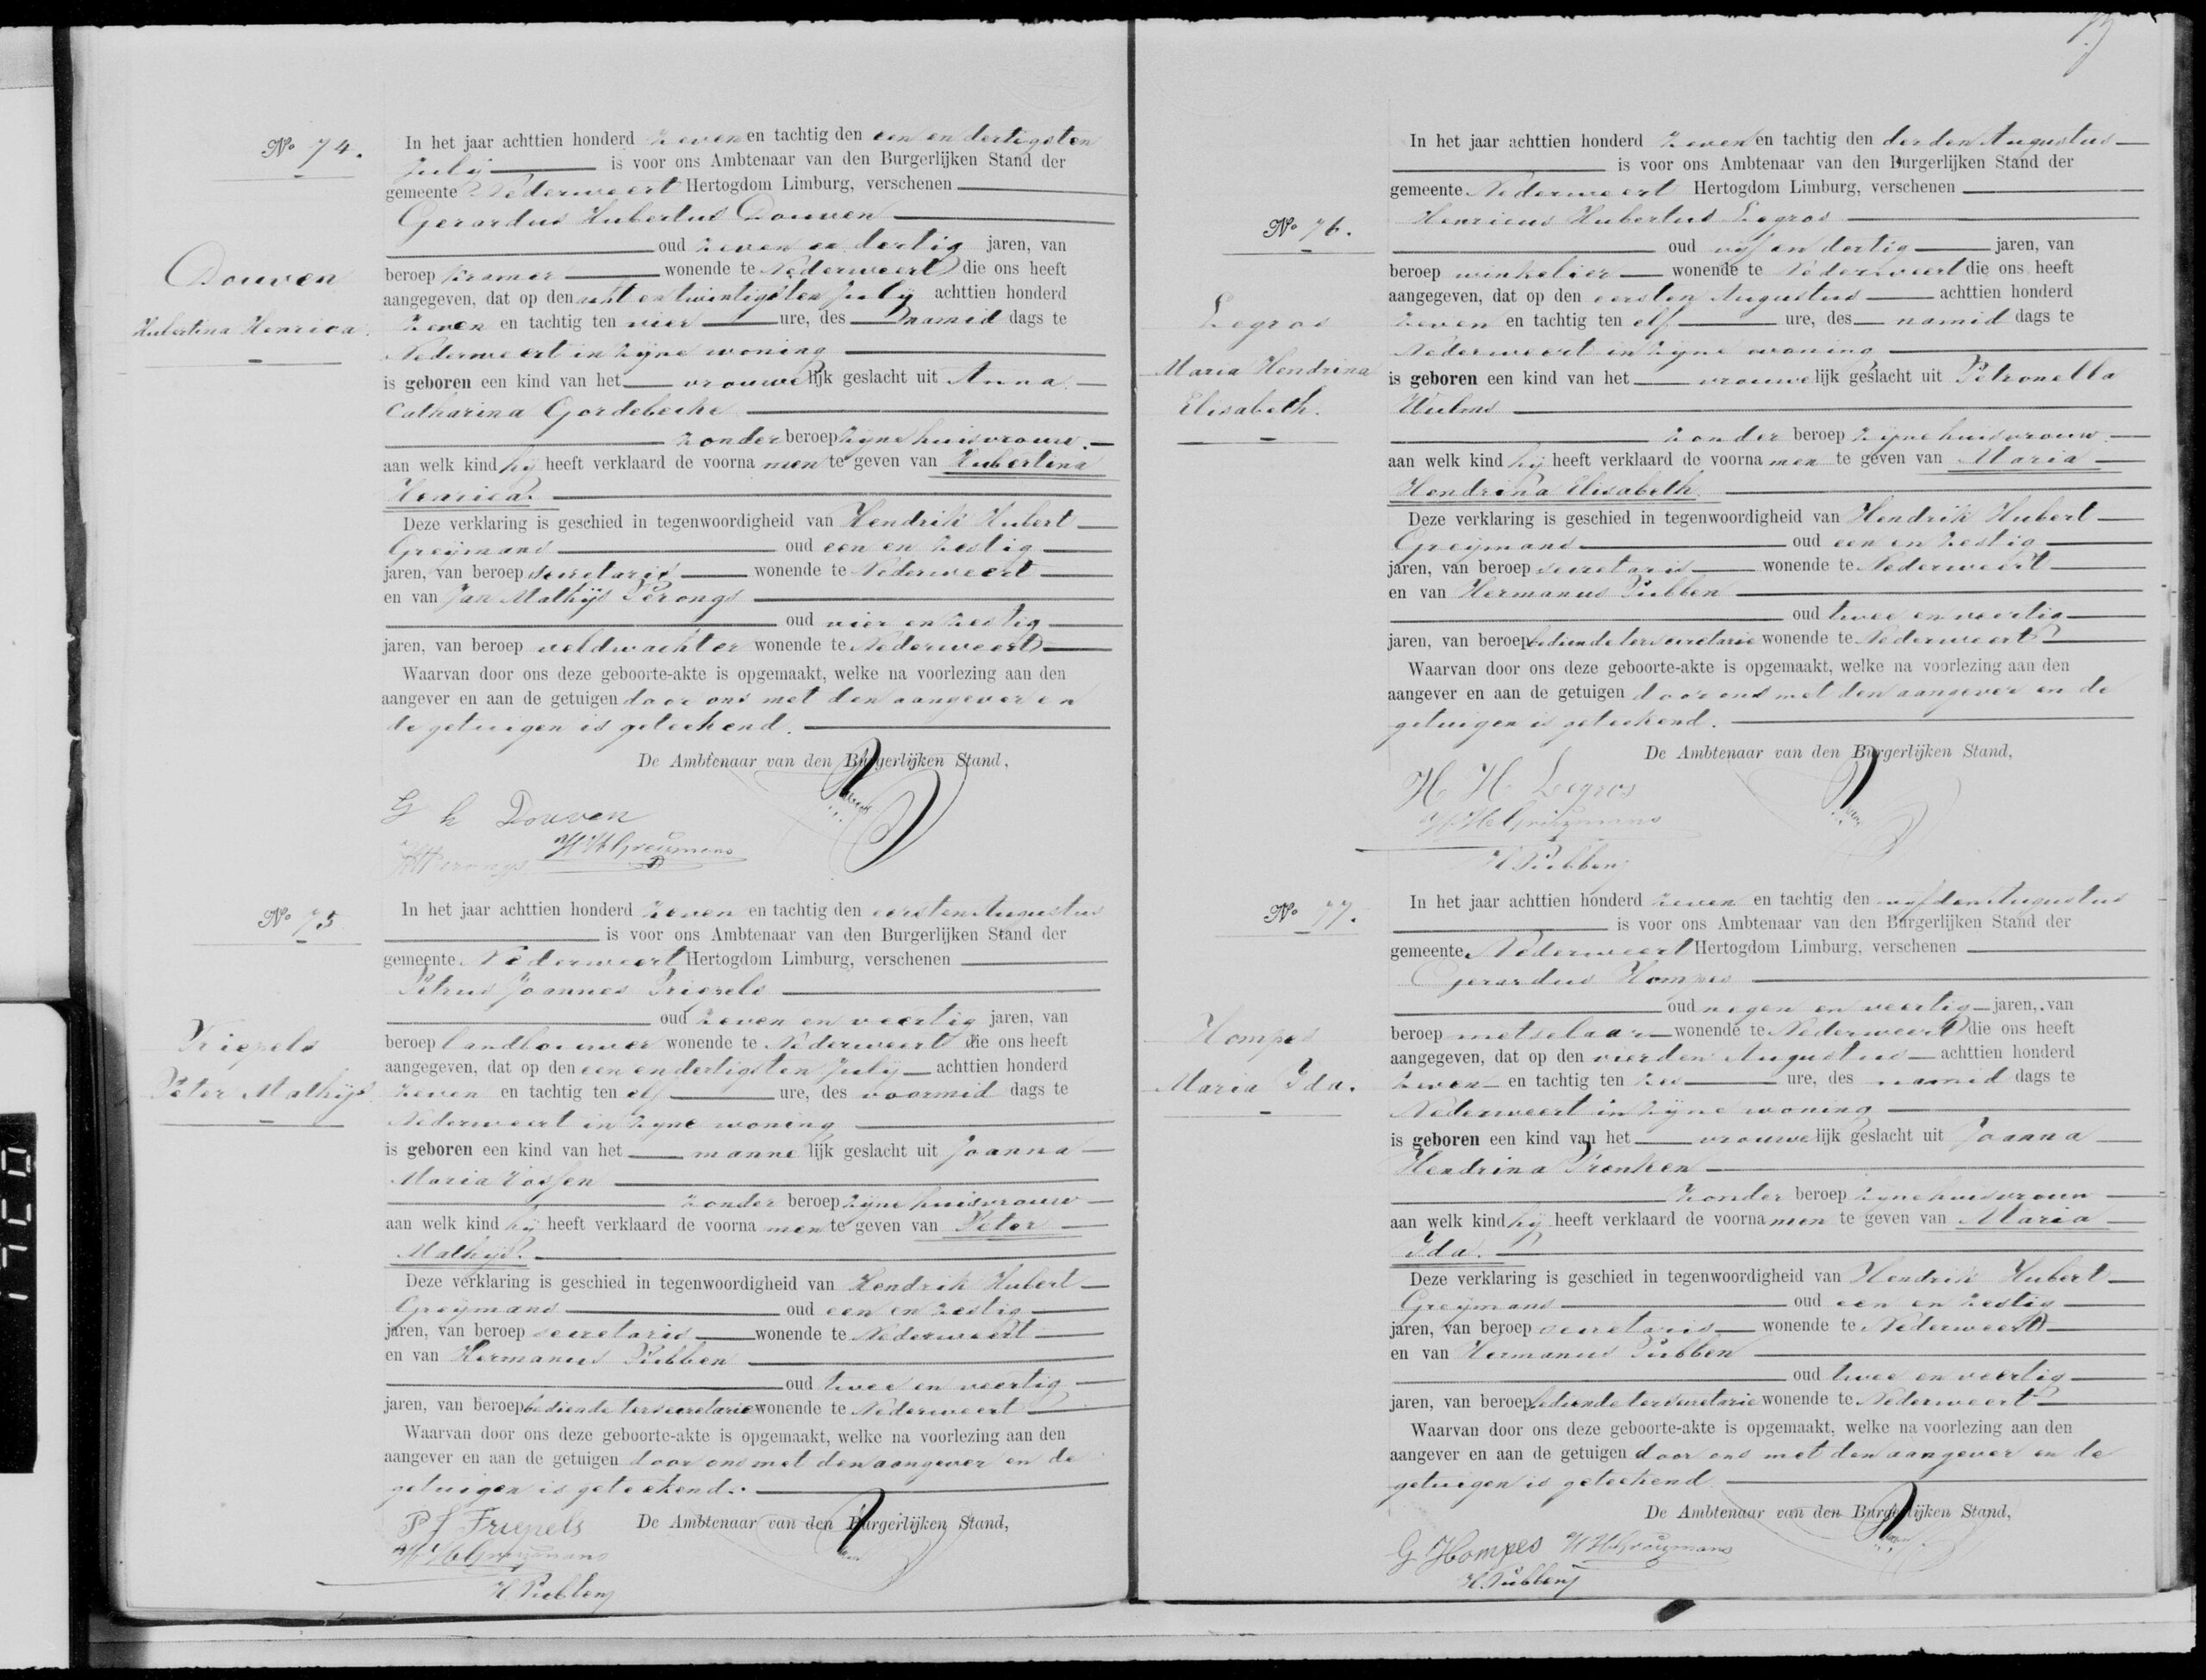 19
No 74.
Douven
Hubertina Henrica.
In het jaar achttien honderd zeven en tachtig den een en dertigsten
July is voor ons Ambtenaar van den Burgerlijken Stand der
gemeente Nederweert Hertogdom Limburg, verschenen
Gerardus Hubertus Douven
oud zeven en dertig jaren, van
beroep kramer wonende te Nederweert die ons heeft
aangegeven, dat op den acht en twintigsten July achttien honderd
zeven en tachtig ten vier ure, des namid dags te
Nederweert in zijne woning
is geboren een kind van het vrouwelijk geslacht uit Anna
Catharina Gordebeke
zonder beroep zijne huisvrouw.
aan welk kind hij heeft verklaard de voornamen te geven van Hubertina
Henrica.
Deze verklaring is geschied in tegenwoordigheid van Hendrik Hubert
Greijmans oud een en zestig
jaren, van beroep secretaris wonende te Nederweert
en van Jan Mathijs Perongs
oud vier en zestig
jaren, van beroep veldwachter wonende te Nederweert
Waarvan door ons deze geboorte-akte is opgemaakt, welke na voorlezing aan den
aangever en aan de getuigen door ons met den aangever en
de getuigen is geteekend.
De Ambtenaar van den Burgerlijken Stand,
G h Douven
HHGreijmans
No 75
Triepels
Peter Mathijs.
In het jaar achttien honderd zeven en tachtig den eersten Augustus
is voor ons Ambtenaar van den Burgerlijken Stand der
gemeente Nederweert Hertogdom Limburg, verschenen
Petrus Joannes Triepels
oud zeven en veertig jaren, van
beroep landbouwer wonende te Nederweert die ons heeft
aangegeven, dat op den een en dertigsten July achttien honderd
zeven en tachtig ten elf ure, des voormid dags te
Nederweert in zijne woning
is geboren een kind van het mannelijk geslacht uit Joanna
Maria
zonder beroep zijne huisvrouw
aan welk kind hij heeft verklaard de voornamen te geven van Peter
Mathijs.
Deze verklaring is geschied in tegenwoordigheid van Hendrik Hubert
Greijmans oud een en zestig
jaren, van beroep secretaris wonende te Nederweert
en van Hermanus Pubben
oud twee en veertig
jaren, van beroep bediende ter secretarie wonende te Nederweert
Waarvan door ons deze geboorte-akte is opgemaakt, welke na voorlezing aan den
aangever en aan de getuigen door ons met den aangever en de
getuigen is geteekend.
P J Friepels De Ambtenaar van den Burgerlijken Stand,
HHGreijmans
H. Pubben
No 76.
Legros
Maria Hendrina
Elisabeth.
In het jaar achttien honderd zeven en tachtig den derden Augustus
is voor ons Ambtenaar van den Burgerlijken Stand der
gemeente Nederweert Hertogdom Limburg, verschenen
Henricus Hubertus Legros
oud vijf en dertig jaren, van
beroep winkelier wonende te Nederweert die ons heeft
aangegeven, dat op den eersten Augustus achttien honderd
zeven en tachtig ten elf ure, des namid dags te
Nederweert in zijne woning
is geboren een kind van het vrouwelijk geslacht uit Petronella
zonder beroep zijne huisvrouw.
aan welk kind hij heeft verklaard de voornamen te geven van Maria
Hendrina Elisabeth.
Deze verklaring is geschied in tegenwoordigheid van Hendrik Hubert
Greijmans oud een en zestig
jaren, van beroep secretaris wonende te Nederweert
en van Hermanus Pubben
oud twee en veertig
jaren, van beroep bediende ter secretarie wonende te Nederweert
Waarvan door ons deze geboorte-akte is opgemaakt, welke na voorlezing aan den
aangever en aan de getuigen door ons met den aangever en de
getuigen is geteekend.
De Ambtenaar van den Burgerlijken Stand,
H H Legros
HHGreijmans
H. Pubben
No 77.
Hompes
Maria Ida.
In het jaar achttien honderd zeven en tachtig den vijfden Augustus
is voor ons Ambtenaar van den Burgerlijken Stand der
gemeente Nederweert Hertogdom Limburg, verschenen
Gerardus Hompes
oud negen en veertig jaren, van
beroep metselaar wonende te Nederweert die ons heeft
aangegeven, dat op den vierden Augustus achttien honderd
zeven en tachtig ten zes ure, des namid dags te
Nederweert in zijne woning
is geboren een kind van het vrouwelijk geslacht uit Joanna
Hendrina Vrenken
zonder beroep zijne huisvrouw
aan welk kind hij heeft verklaard de voornamen te geven van Maria
Ida.
Deze verklaring is geschied in tegenwoordigheid van Hendrik Hubert
Greijmans oud een en zestig
jaren, van beroep secretaris wonende te Nederweert
en van Hermanus Pubben
oud twee en veertig
jaren, van beroep bediende ter secretarie wonende te Nederweert
Waarvan door ons deze geboorte-akte is opgemaakt, welke na voorlezing aan den
aangever en aan de getuigen door ons met den aangever en de
getuigen is geteekend
De Ambtenaar van den Burgerlijken Stand,
G Hompes HHGreijmans
H. Pubben